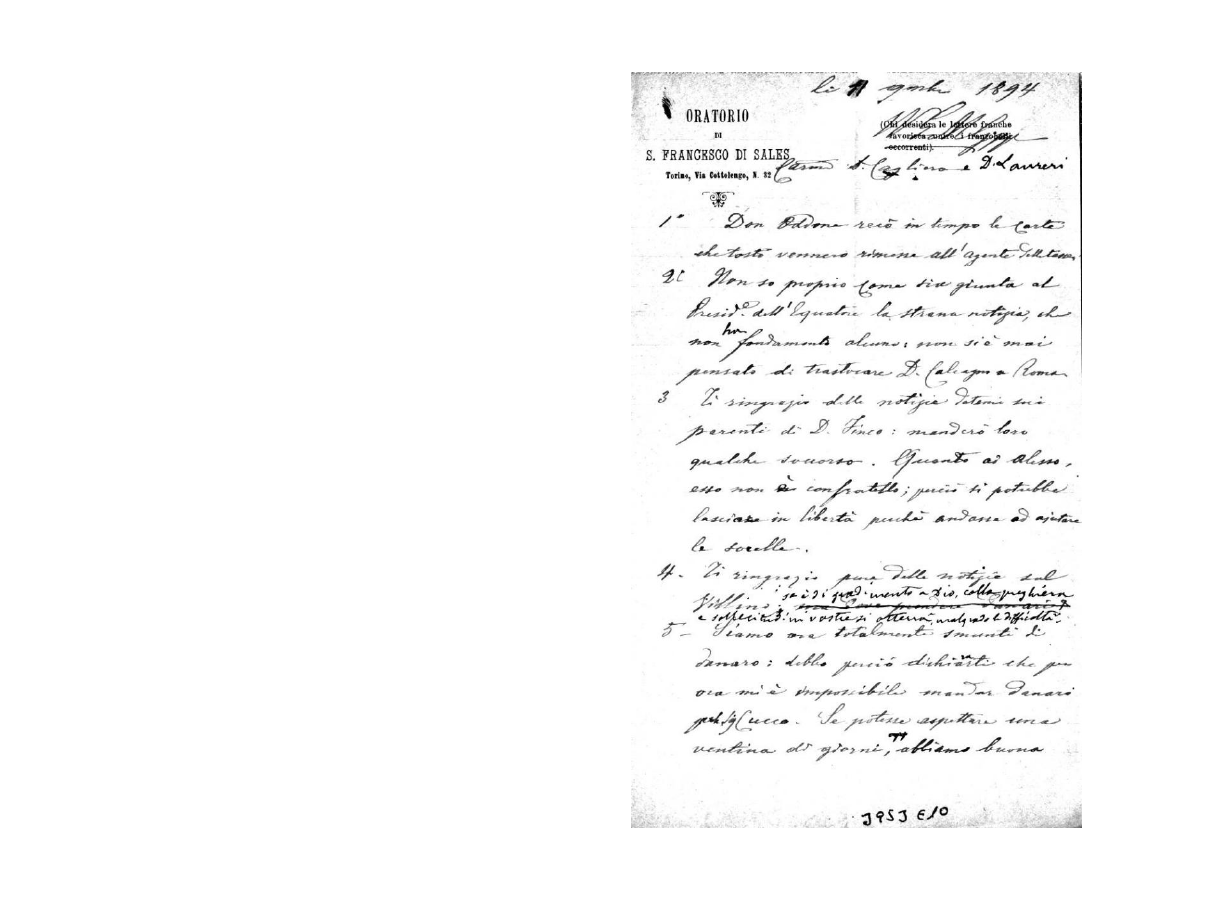 li 9mbre 1894
ORATORIO
DI
S. FRANCESCO DI SALES
Torino, Via Cottolengo, N. 32
(Chi desidera le lettere franche
favorisca unire i francobolli
occorrenti).
Carmi D. Cagliero e D. Laureri
1° Don Oddone recò in tempo le carte
che tosto vennero rimesse all'agente delle tasse
2° Non so proprio come sia giunta al
Presid.e dell'Equatore la strana notizia, che
non ha fondamento alcuno; non si è mai
pensato di traslocare D. Calcagno a Roma
3 Ti ringrazio delle notizie datemi sui
parenti di D. Finco: manderò loro
qualche soccorso. Quanto ad Alesso,
esso non è confratello; perciò si potrebbe
lasciare in libertà perchè andasse ad ajutare
le sorelle.
4. Ti ringrazio pure delle notizie sul
Villino; se è di gradimento a Dio, colla preghiera
e sollecitud. vostre si otterrà, malgrado le difficoltà.
5 - Siamo ora totalmente smunti di
danaro: debbo perciò dichiararti che per
ora mi è impossibile mandar danari
pel Sig Cucco. Se potesse aspettare una
ventina di giorni, abbiamo buona
J95J E10